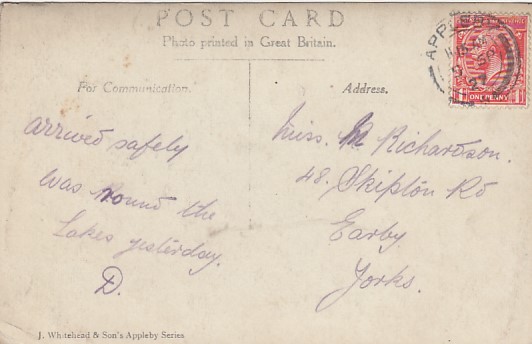 POST CARD
Photo printed in Great Britain.
For Communication.
Address.
arrived safely
was round the
Lakes yesterday.
D.
Miss. M Richardson.
48. Skipton Rd
Earby
Yorks.
J. Whitehead & Son's Appleby Series
APPLEBY
27
ONE PENNY